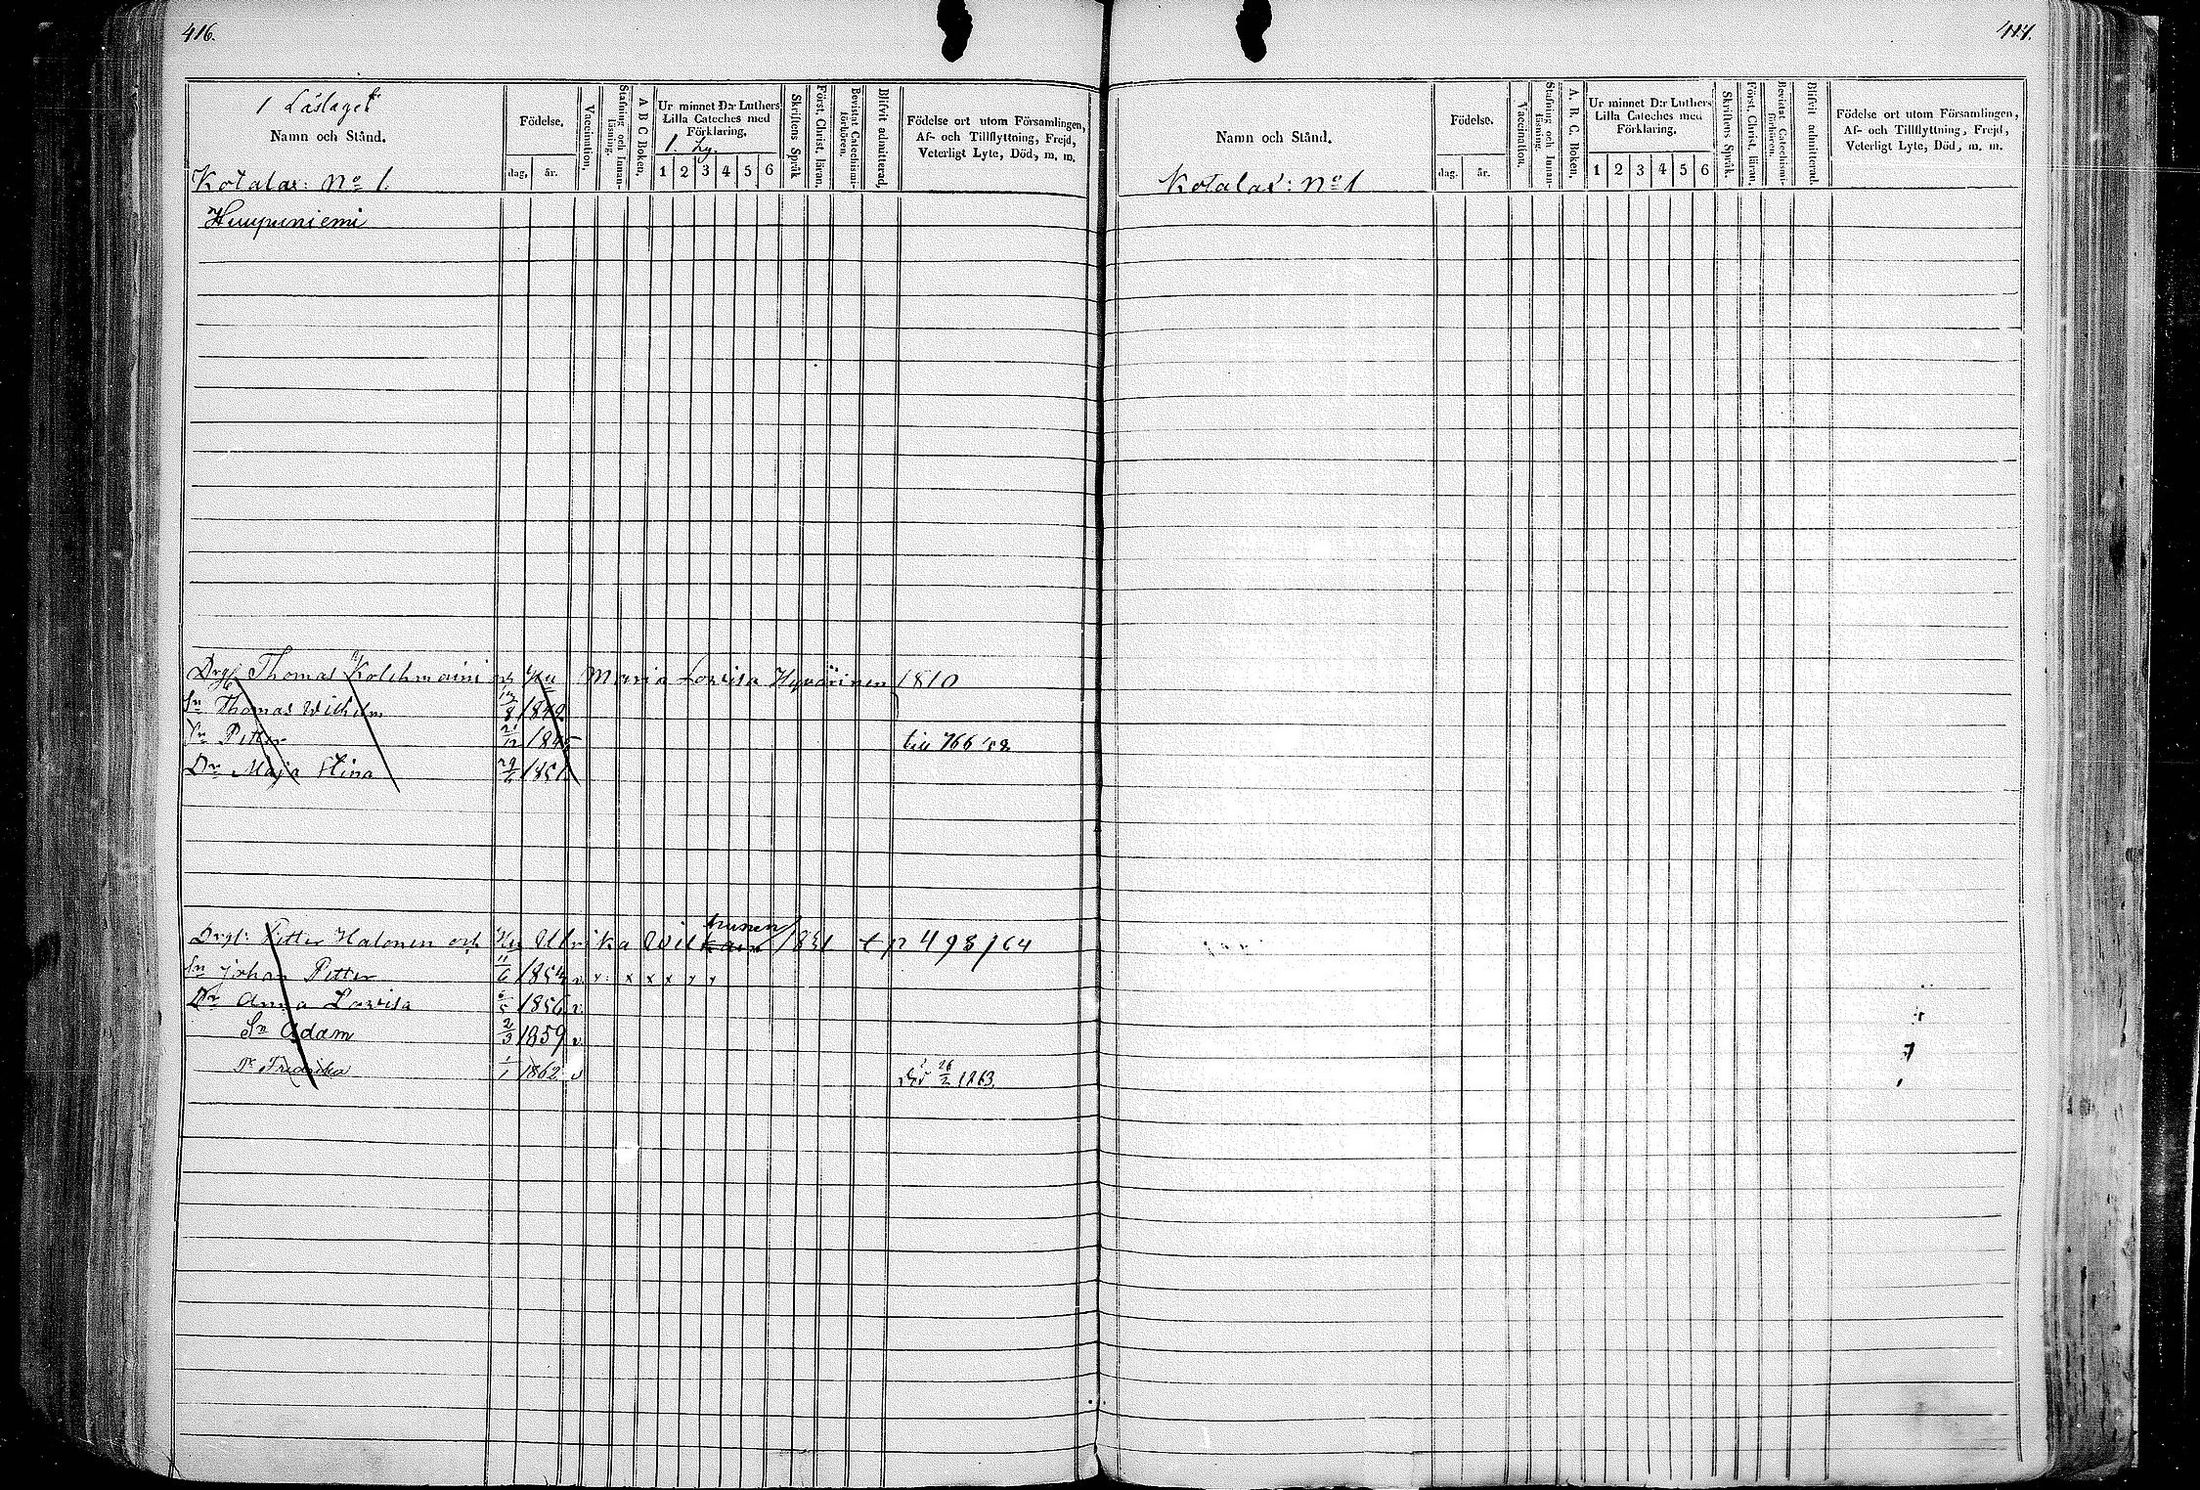 416.
1 Läslaget
Namn och Stånd.
Födelse.
dag, år.
Vaccination.
Stafning och Innanläsning.
A B C Boken.
Ur minnet D:r Luthers Lilla Cateches med Förklaring.
1. Hg.
1 2 3 4 5 6
Skriftens Språk
Först. Christ. läran.
Bevistat Catechismiförhören.
Blifvit admitterad.
Födelse ort utom Församlingen, Af- och Tillflyttning, Frejd, Veterligt Lyte, Död, m. m.
Kotalax: No 1.
Huupuniemi
Drgl Thomas Kolehmaini och Hu Maria Lovisa Hyvärinen 1810
Sn Thomas Wilhelm 8 1842
Sn Petter 21/12 1845 till 766
Dr Maja Stina 29 1851
Drgl: Petter Halonen och Hu Ullrika Wil hunen 1831 t p 498/64
Sn Johan Petter 11/6 1854 v x x x x
Dr Anna Lovisa 5 1856 v.
Sn Adam 2/3 1859 v.
Dr Fredrika 1/1 1862 v Död 26/2 1863.
417.
Namn och Stånd.
Födelse.
dag. år.
Vaccination.
Stafning och Innanläsning.
A. B. C. Boken.
Ur minnet D:r Luthers Lilla Cateches med Förklaring.
1 2 3 4 5 6
Skriftens Språk.
Först. Christ. läran.
Bevistat Catechismiförhören.
Blifvit admitterad.
Födelse ort utom Församlingen, Af- och Tillflyttning, Frejd, Veterligt Lyte, Död, m. m.
Kotalax: No 1